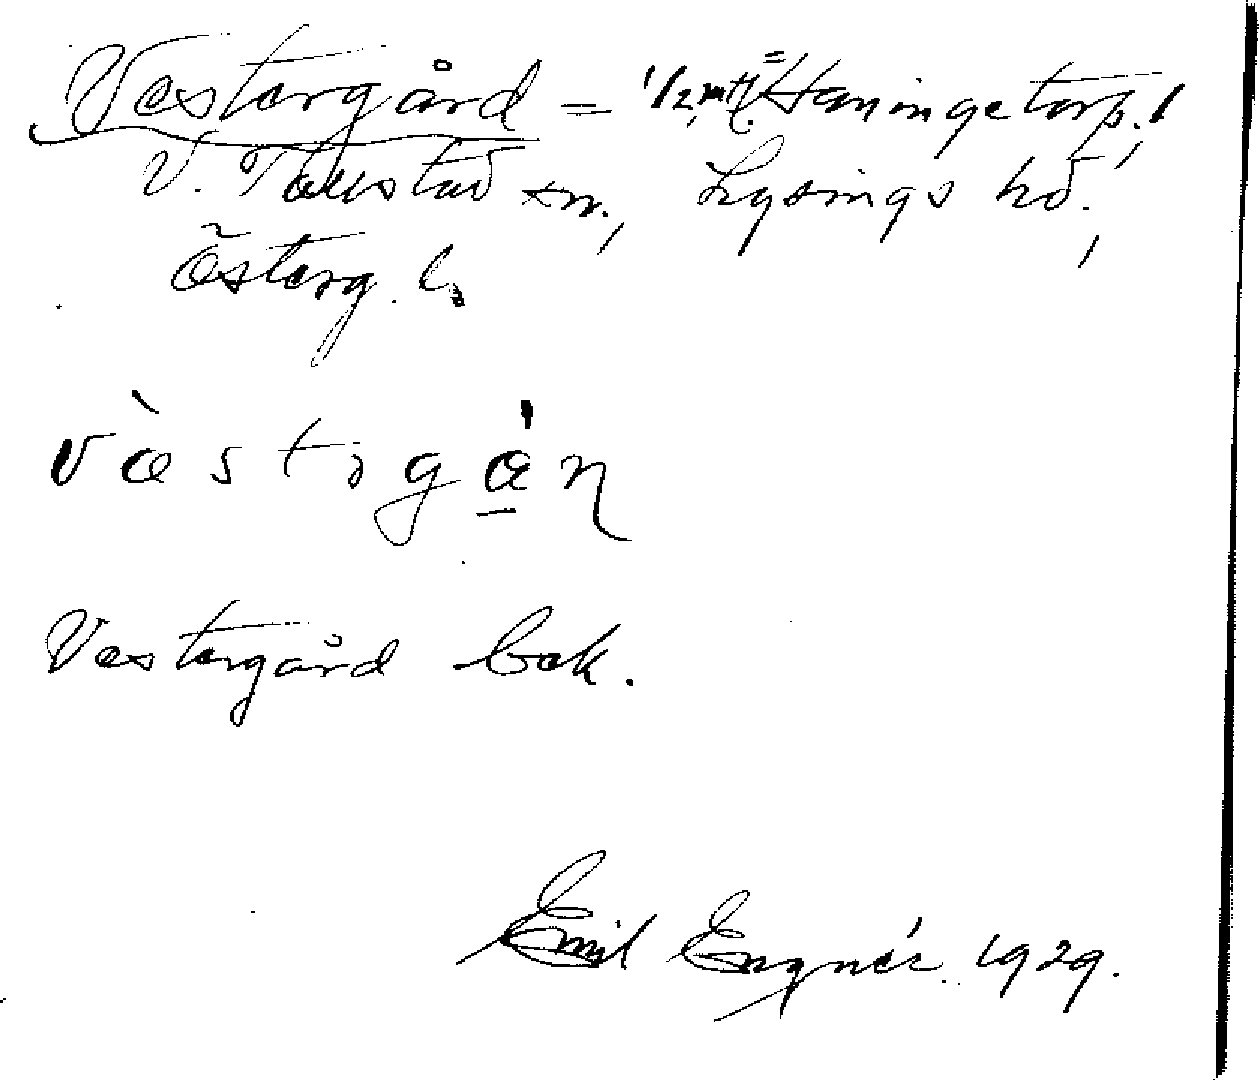 Vestergård = 1/2 mtl. Haningetorp,
V. Tollstad sn., Lysings hd.,
Österg. l.
vàstrgán
Vestergård bok.
Emil Engnér 1929.